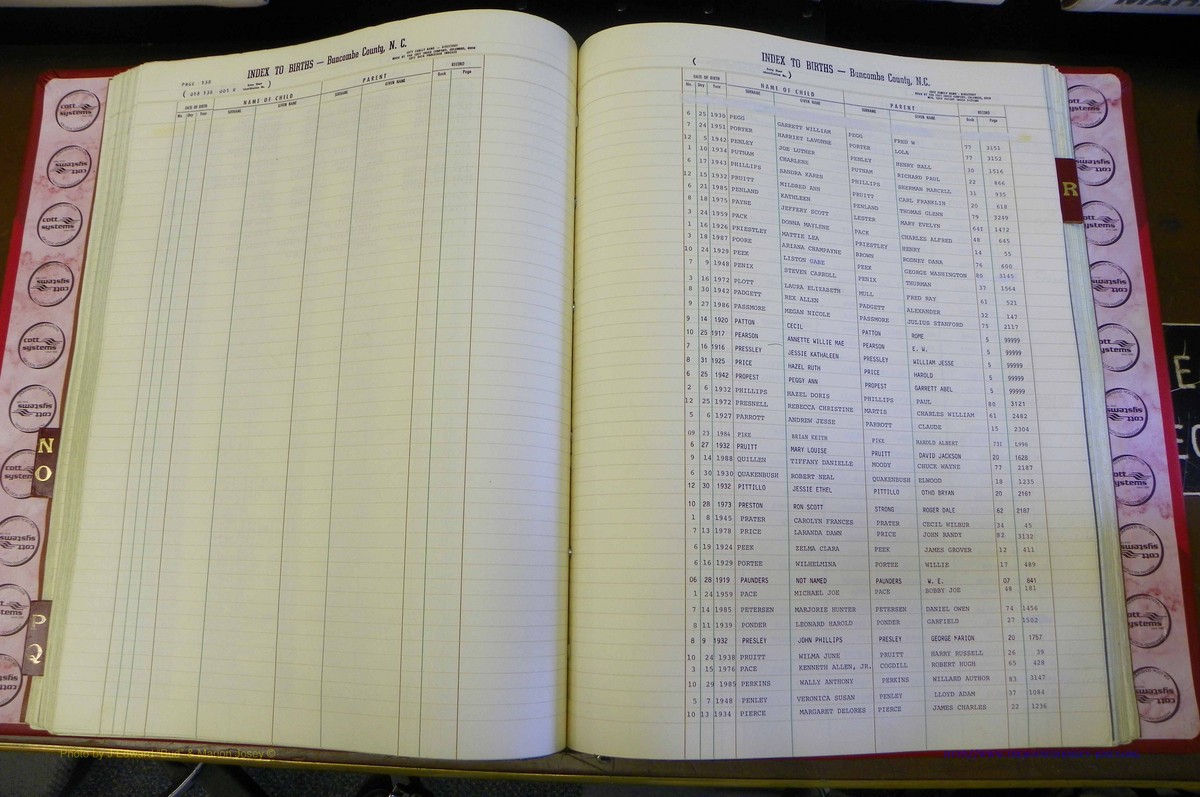 PAGE 535
INDEX TO BIRTHS — Buncombe County, N. C.
DATE OF BIRTH NAME OF CHILD PARENT RECORD
Mo. Day Year SURNAME GIVEN NAME SURNAME GIVEN NAME Book Page
INDEX TO BIRTHS — Buncombe County, N.C.
DATE OF BIRTH NAME OF CHILD PARENT RECORD
Mo. Day Year SURNAME GIVEN NAME SURNAME GIVEN NAME Book Page
6 25 1930 PEGG GARRETT WILLIAM PEGG FRED W 77 3151
7 24 1951 PORTER HARRIET LAVONNE PORTER LOLA 77 3152
12 5 1942 PENLEY JOE LUTHER PENLEY HENRY HALL 30 1516
1 10 1934 PUTNAM CHARLENE PUTNAM RICHARD PAUL 22 866
6 17 1943 PHILLIPS SANDRA KAREN PHILLIPS SHERMAN MARCELL 31 935
12 15 1932 PRUITT MILDRED ANN PRUITT CARL FRANKLIN 20 618
6 21 1985 PENLAND KATHLEEN PENLAND THOMAS GLENN 79 3249
8 18 1975 PAYNE JEFFERY SCOTT LESTER MARY EVELYN 641 1472
3 24 1959 PACK DONNA MAYLENE PACK CHARLES ALFRED 48 645
1 16 1926 PRIESTLEY MATTIE LEA PRIESTLEY HENRY 14 55
3 18 1987 POORE ARIANA CHAMPAYNE BROWN RODNEY DAHA 76 600
10 24 1929 PEEK LISTON GABE PEEK GEORGE WASHINGTON 88 3145
7 9 1948 PENIX STEVEN CARROLL PENIX THURMAN 37 1564
3 16 1972 PLOTT LAURA ELIZABETH MULL FRED RAY 61 521
8 30 1942 PADGETT REX ALLEN PADGETT ALEXANDER 32 147
9 27 1986 PASSMORE MEGAN NICOLE PASSMORE JULIUS STANFORD 75 2117
9 14 1920 PATTON CECIL PATTON ROME 5 99999
10 25 1917 PEARSON ANNETTE WILLIE MAE PEARSON E. W. 5 99999
7 16 1916 PRESSLEY JESSIE KATHALEEN PRESSLEY WILLIAM JESSE 5 99999
8 31 1925 PRICE HAZEL RUTH PRICE HAROLD 5 99999
6 25 1942 PROPEST PEGGY ANN PROPEST GARRETT ABEL 5 99999
2 6 1932 PHILLIPS HAZEL DORIS PHILLIPS PAUL 80 3121
12 25 1972 PRESNELL REBECCA CHRISTINE MARTIS CHARLES WILLIAM 61 2482
5 6 1927 PARROTT ANDREW JESSE PARROTT CLAUDE 15 2304
09 23 1984 PIKE BRIAN KEITH PIKE HAROLD ALBERT 731 1996
6 27 1932 PRUITT MARY LOUISE PRUITT DAVID JACKSON 20 1628
9 14 1988 QUILLEN TIFFANY DANIELLE MOODY CHUCK WAYNE 77 2187
6 30 1930 QUAKENBUSH ROBERT NEAL QUAKENBUSH ELWOOD 18 1235
12 30 1932 PITTILLO JESSIE ETHEL PITTILLO OTHO BRYAN 20 2161
10 28 1973 PRESTON RON SCOTT STRONG ROGER DALE 62 2187
1 8 1945 PRATER CAROLYN FRANCES PRATER CECIL WILBUR 34 45
7 13 1978 PRICE LARANDA DAWN PRICE JOHN RANDY 82 3132
6 19 1924 PEEK ZELMA CLARA PEEK JAMES GROVER 12 411
6 16 1929 PORTEE WILHELMINA PORTEE WILLIE 17 489
06 28 1919 PAUNDERS NOT NAMED PAUNDERS W. E. 07 841
1 24 1959 PACE MICHAEL JOE PACE BOBBY JOE 48 181
7 14 1985 PETERSEN MARJORIE HUNTER PETERSEN DANIEL OWEN 74 1456
8 11 1939 PONDER LEONARD HAROLD PONDER GARFIELD 27 1502
8 9 1932 PRESLEY JOHN PHILLIPS PRESLEY GEORGE MARION 20 1757
10 24 1938 PRUITT WILMA JUNE PRUITT HARRY RUSSELL 26 39
3 15 1976 PACE KENNETH ALLEN, JR. COGDILL ROBERT HUGH 65 428
10 29 1985 PERKINS WALLY ANTHONY PERKINS WILLARD AUTHOR 83 3147
5 7 1948 PENLEY VERONICA SUSAN PENLEY LLOYD ADAM 37 1084
10 13 1934 PIERCE MARGARET DELORES PIERCE JAMES CHARLES 22 1236
N
O
P
Q
R
cott systems
Photo by J Edward "Bud" & Marion Josey ©